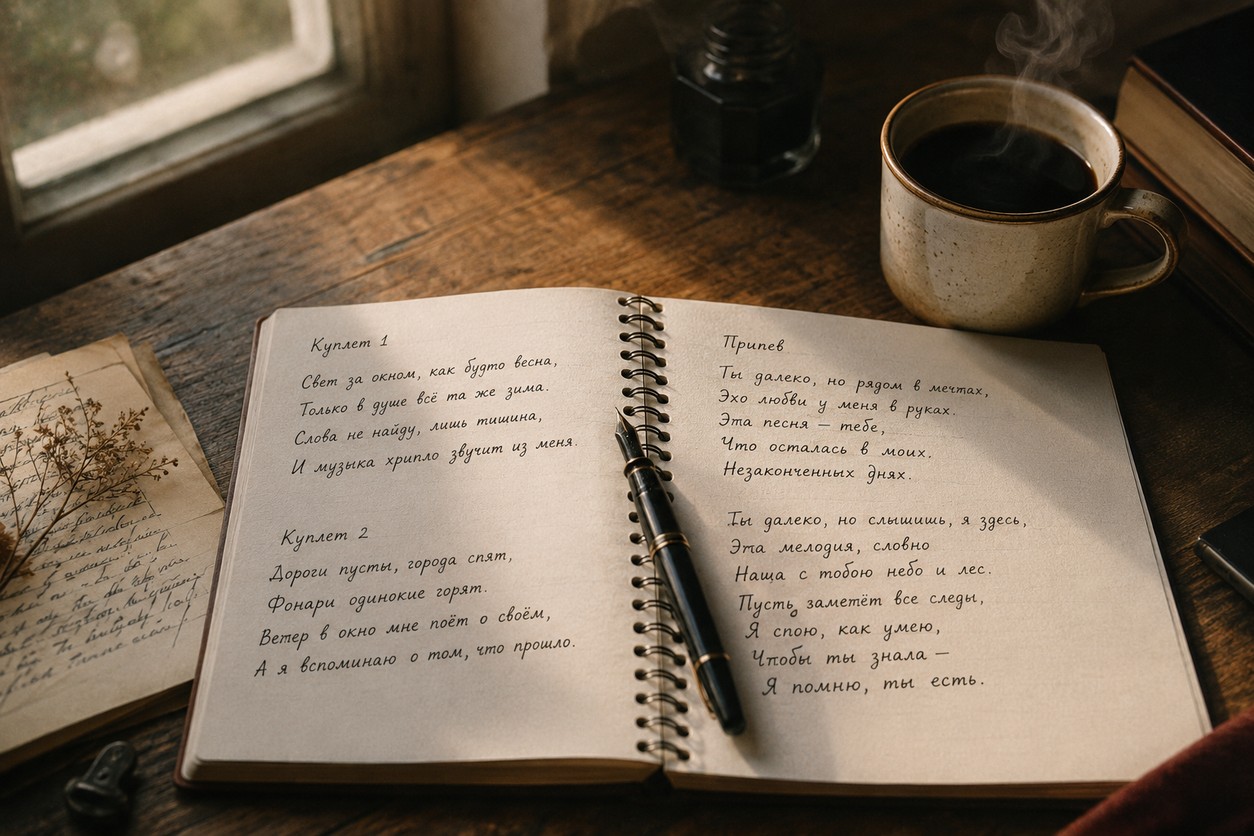 Куплет 1
Свет за окном, как будто весна,
Только в душе всё та же зима.
Слова не найду, лишь тишина,
И музыка хрипло звучит из меня.
Куплет 2
Дороги пусты, города спят,
Фонари одинокие горят.
Ветер в окно мне поёт о своём,
А я вспоминаю о том, что прошло.
Припев
Ты далеко, но рядом в мечтах,
Эхо любви у меня в руках.
Эта песня — тебе,
Что осталась в моих.
Незаконченных днях.
Ты далеко, но слышишь, я здесь,
Эта мелодия, словно
Наша с тобою небо и лес.
Пусть заметёт все следы,
Я спою, как умею,
Чтобы ты знала —
Я помню, ты есть.